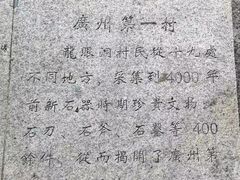 廣州第一村
龍眼洞村民從十九處
不同地方，采集到4000年
前新石器時期珍貴文物：
石刀、石斧、石鑿等400
餘件，從而揭開了廣州第